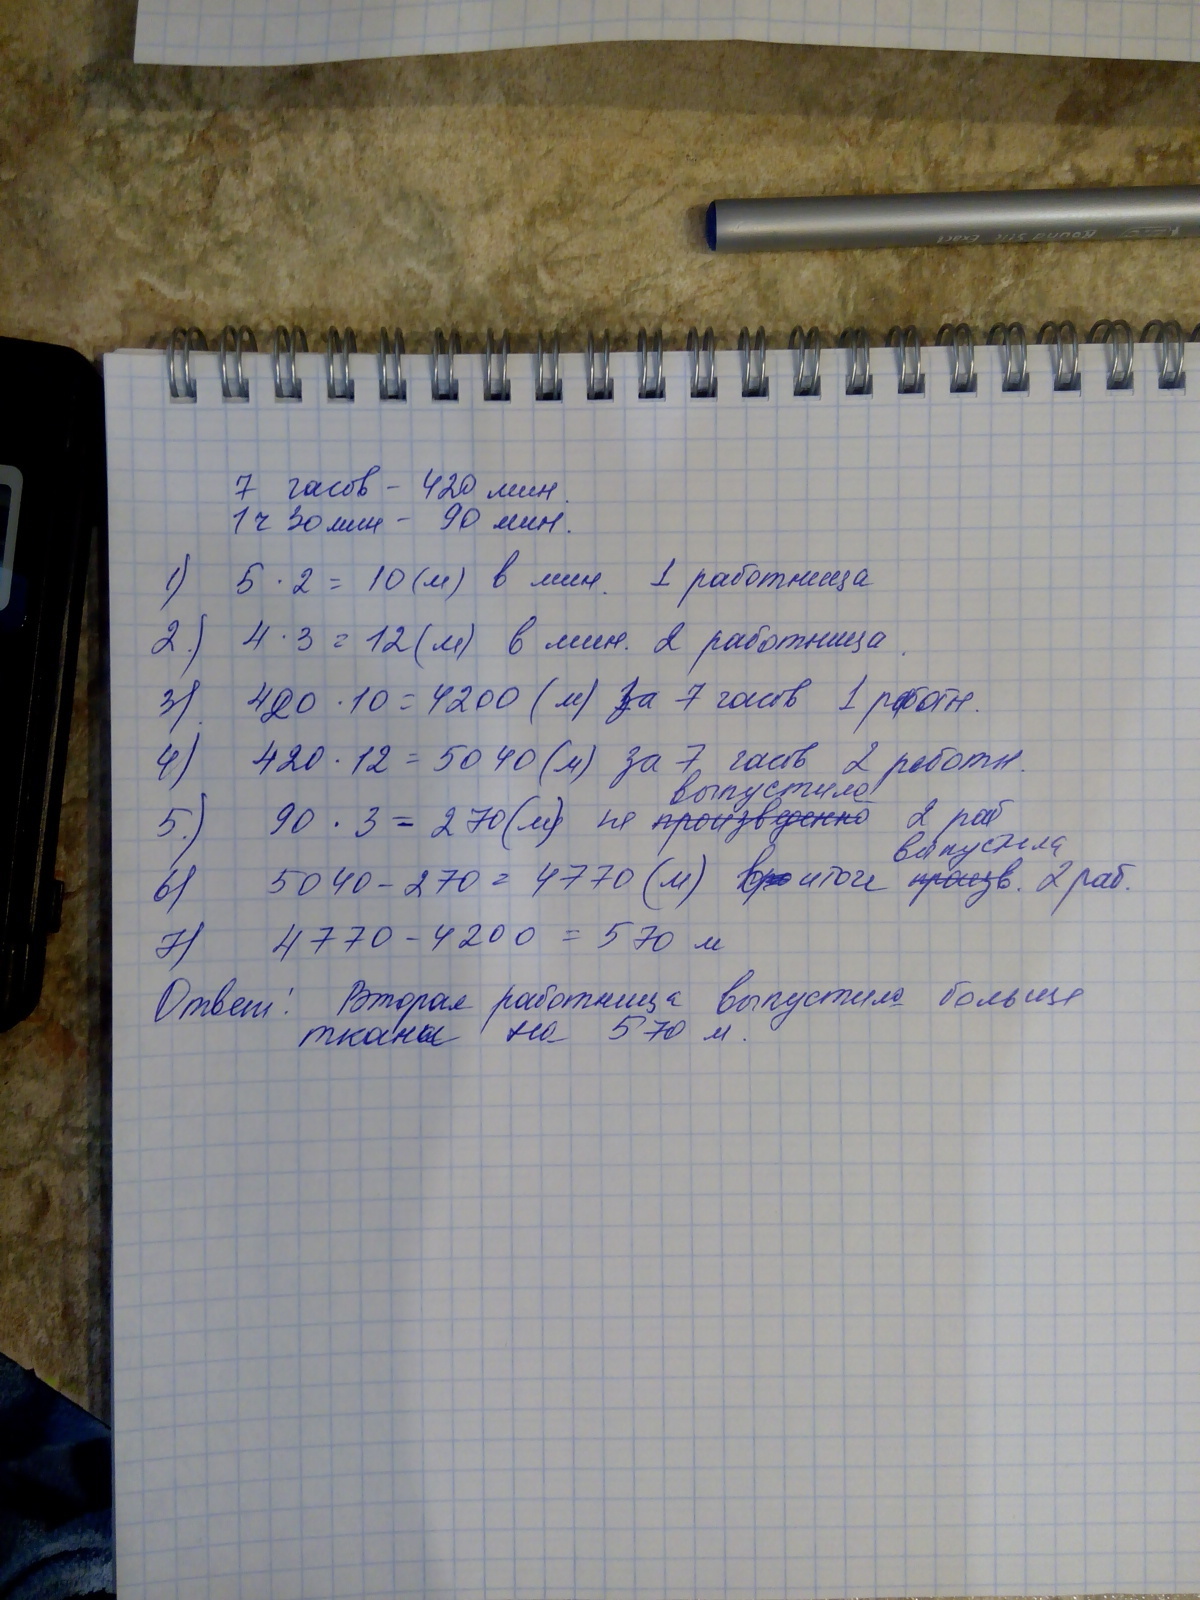 Round Stic Exact
7 часов - 420 мин.
1ч 30 мин - 90 мин.
1) 5 · 2 = 10 (м) в мин. 1 работница
2.) 4 · 3 = 12 (м) в мин. 2 работница.
3) 420 · 10 = 4200 (м) за 7 часов 1 работн.
4) 420 · 12 = 5040 (м) за 7 часов 2 работн.
выпустила
5.) 90 · 3 = 270 (м) не произведенно 2 раб
выпустила
6) 5040 - 270 = 4770 (м) итоге произв. 2 раб.
7) 4770 - 4200 = 570 м
Ответ: Вторая работница выпустила больше
ткани на 570 м.